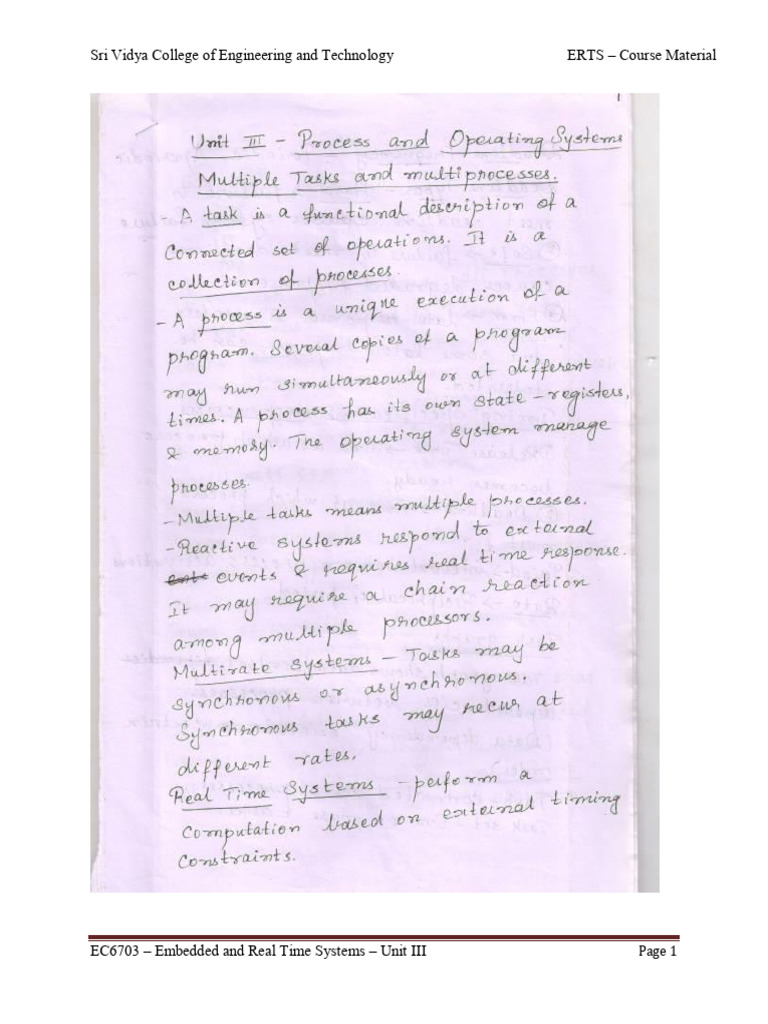 Sri Vidya College of Engineering and Technology ERTS – Course Material
1
Unit III - Process and Operating Systems
Multiple Tasks and multiprocesses.
- A task is a functional description of a
connected set of operations. It is a
collection of processes.
- A process is a unique execution of a
program. Several copies of a program
may run simultaneously or at different
times. A process has its own state - registers,
& memory. The operating system manage
processes.
- Multiple tasks means multiple processes.
- Reactive systems respond to external
events & requires real time response.
It may require a chain reaction
among multiple processors.
Multirate systems - Tasks may be
synchronous or asynchronous.
Synchronous tasks may recur at
different rates.
Real Time Systems - perform a
computation based on external timing
constraints.
EC6703 – Embedded and Real Time Systems – Unit III Page 1